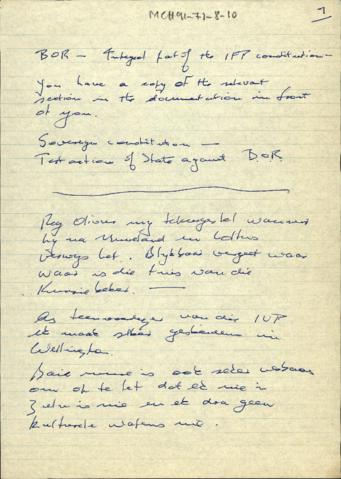 MCH91-71-8-10
1
BOR – Integral part of the IFP constitution –
You have a copy of the relevant
section in the documentation in front
of you.
Sovereign constitution –
Test action of State against B.O.R.
Reg Olivier my teleurgestel wanneer
hy na Kwazulu en Lothus
verwys het. Blykbaar vergeet waar
waar is die tuis van die
As van die IVP
ek maak
Wellington.
Baie mense is ook seker
om op te let dat ek nie 'n
Zulu is nie en ek dra geen
kulturele wapens nie.